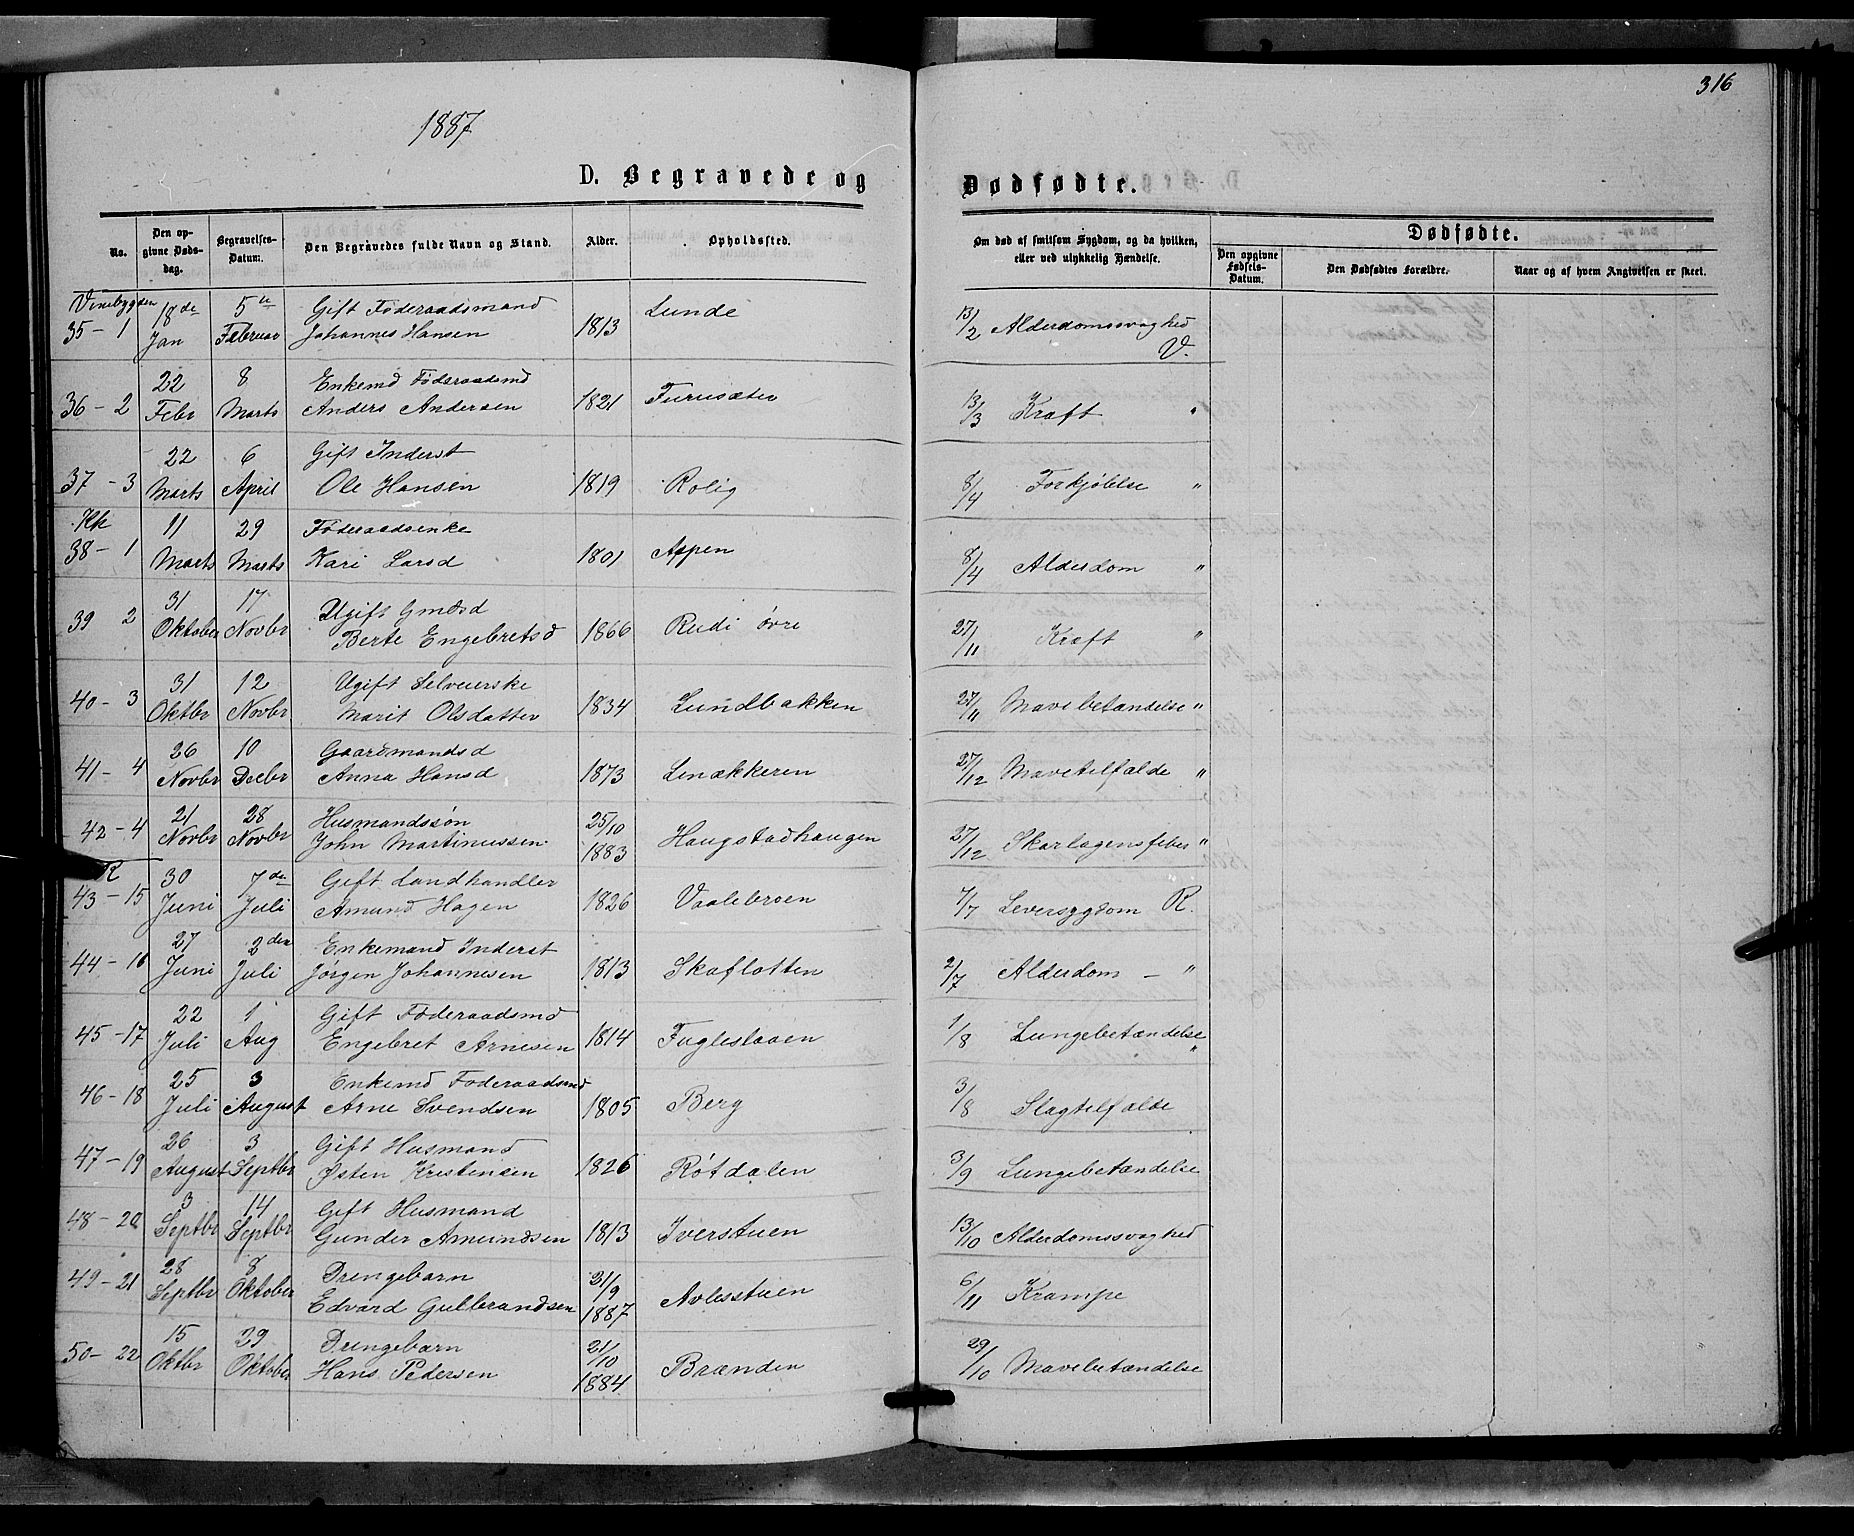 316
1887
D. Begravede og Dødfødte.
No.
Den opgivne Dødsdag.
Begravelses-Datum.
Den Begravedes fulde Navn og Stand.
Alder.
Opholdssted.
Om død af smitsom Sygdom, og da hvilken, eller ved ulykkelig Hændelse.
Dødfødte.
Den opgivne Fødsels-Datum.
Den Dødfødtes Forældre.
Naar og af hvem Angivelsen er skeet.
Vinebygden
35 - 1 18de Jan 5te Februar Gift Föderaadsmand Johannes Hansen 1813 Lunde 13/2 Alderdomssvaghed V.
36 - 2 22 Febr 8 Marts Enkemd Føderaadsmd Anders Andersen 1821 Furusæter 13/3 Kraft "
37 - 3 22 Marts 6 April Gift Inderst Ole Hansen 1819 Rolig 8/4 Forkjølelse "
Kk
38 - 1 11 Marts 29 Marts Föderaadsenke Kari Larsd 1801 Aspen 8/4 Alderdom "
39 2 31 Oktober 17 Novbr Ugift Gmdsd Berte Engebretsd 1866 Rudi øvre 27/11 Kræft "
40 - 3 31 Oktbr 12 Novbr Ugift Selveierske Marit Olsdatter 1834 Lundbakken 27/11 Mavebetændelse "
41 - 4 26 Novbr 10 Decbr Gaardmandsd Anna Hansd 1873 Linækkeren 27/12 Mavetilfælde "
42 - 4 21 Novbr 28 Novbr Husmandssøn John Martinussen 25/10 1883 Haugstadhaugen 27/12 Skarlagensfeber "
R
43 - 15 30 Juni 7de Juli Gift Landhandler Amund Hagen 1826 Vaalebroen 7/7 Leversygdom R.
44 - 16 27 Juni 2den Juli Enkemand Inderst Jørgen Johannesen 1813 Skaflotten 2/7 Alderdom - "
45 - 17 22 Juli 1 Aug Gift Föderaadsmd Engebret Arnesen 1814 Fuglesloen 1/8 Lungebetændelse "
46 - 18 25 Juli 3 August Enkemd Foderaadsmd Arne Svendsen 1805 Berg 3/8 Slagtilfælde
47 - 19 26 August 3 Septbr Gift Husmand Østen Kristensen 1826 Røtdalen 3/9 Lungebetændelse
48 - 20 3 Septbr 14 Septbr Gift Husmand Gunder Amundsen 1813 Iverstuen 13/10 Alderdomssvaghed
49 - 21 28 Septbr 8 Oktober Drengebarn Edvard Gulbrandsen 21/9 1887 Avlesstuen 6/11 Krampe
50 - 22 15 Oktbr 29 Oktober Drengebarn Hans Pedersen 21/10 1884 Brænden 29/10 Mavebetændelse